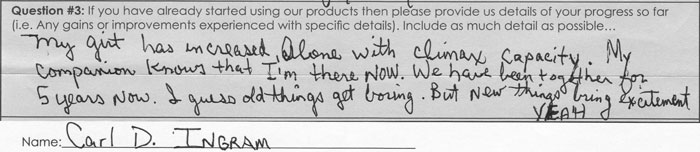 Question #3: If you have already started using our products then please provide us details of your progress so far
(i.e. Any gains or improvements experienced with specific details). Include as much detail as possible...
My girt has increased, Alone with climax capacity. My
companion knows that I'm there NOW. We have been together for
5 years NOW. I guess old things get boring. But New things bring excitement
YEAH
Name: Carl D. INGRAM